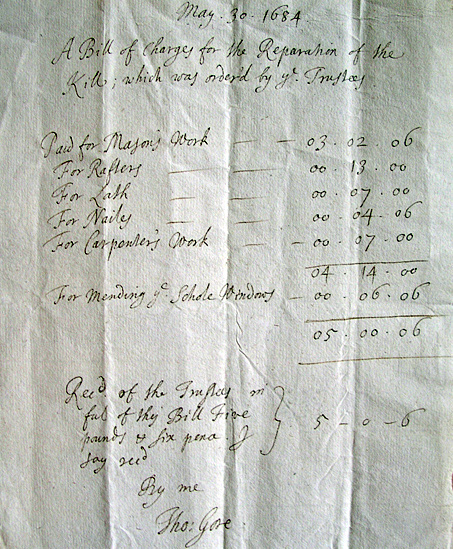 May . 30 . 1684
A Bill of Charges for the Reparation of the
Kill; which was order'd by ye. Trustees
Paid for Mason's Work — — 03 . 02 . 06
For Rafters — — 00 . 13 . 00
For Lath — — 00 . 07 . 00
For Nailes — — 00 . 04 . 06
For Carpenter's Work — — 00 . 07 . 00
04 . 14 . 00
For Mending ye. Schole Windows — 00 . 06 . 06
05 . 00 . 06
Rec'd of the Trustees in
full of this Bill Five
pounds & six pence. I
say rec'd
5 — 0 — 6
By me
Tho: Gore